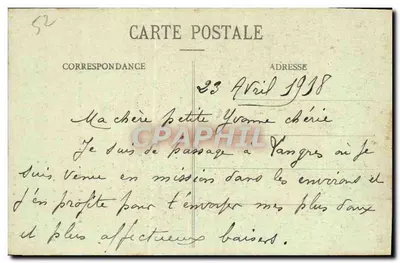 52
CARTE POSTALE
CORRESPONDANCE
ADRESSE
23 Avril 1918
Ma chère petite Yvonne chérie
Je suis de passage à Langres où je
suis venu en mission dans les environs et
j'en profite pour t'envoyer mes plus doux
et plus affectueux baisers.
CPAPHIL